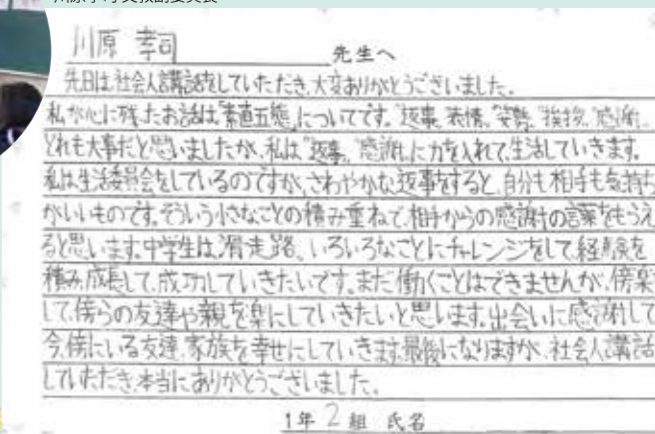 川原 孝司 先生へ
先日は社会人講話をしていただき、大変ありがとうございました。
私が心に残ったお話は"素直五態"についてです。"返事、表情、姿勢、挨拶、感謝、
どれも大事だと思いましたが、私は"返事、感謝"に力を入れて、生活していきます。
私は生活委員会をしているのですが、さわやかな返事をすると、自分も相手も気持ち
がいいものです。そういう小さなことの積み重ねで、相手からの感謝の言葉をもらえ
ると思います。中学生は滑走路、いろいろなことにチャレンジをして経験を
積み、成長して、成功していきたいです。まだ働くことはできませんが、傍楽
して、傍らの友達や親を楽にしていきたいと思います。出会いに感謝して
今、傍にいる友達、家族を幸せにしていきます。最後になりますが、社会人講話
していただき、本当にありがとうございました。
1年 2 組 氏名